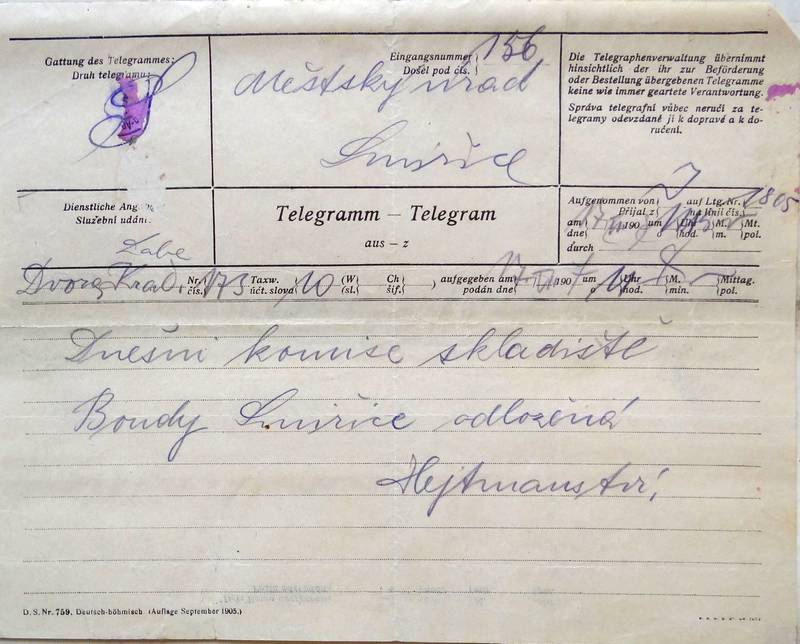 Gattung des Telegrammes:
Druh telegramu:
Eingangsnummer
Došel pod čís.
156
Městský úřad
Smiřice
Die Telegraphenverwaltung übernimmt
hinsichtlich der ihr zur Beförderung
oder Bestellung übergebenen Telegramme
keine wie immer geartete Verantwortung.
Správa telegrafní vůbec neručí za te-
legramy odevzdané jí k dopravě a k do-
ručení.
Dienstliche Ang
Služební údání
Labe
Telegramm – Telegram
aus – z
Aufgenommen von auf Ltg. Nr. 1805
Přijal z na línii čís.
am 190 um Uhr M. Mt.
dne o hod. m. pol.
durch
Dvora Král. Nr. 173 Taxw. 10 (W Ch ) aufgegeben am 17 190 um Uhr M. Mittag.
čís. účt. slova (sl. šif. podán dne o hod. min. pol.
Dnešní komise skladiště
Bondy Smiřice odložená
Hejtmanství.
D. S. Nr. 759. Deutsch-böhmisch. (Auflage September 1905.)